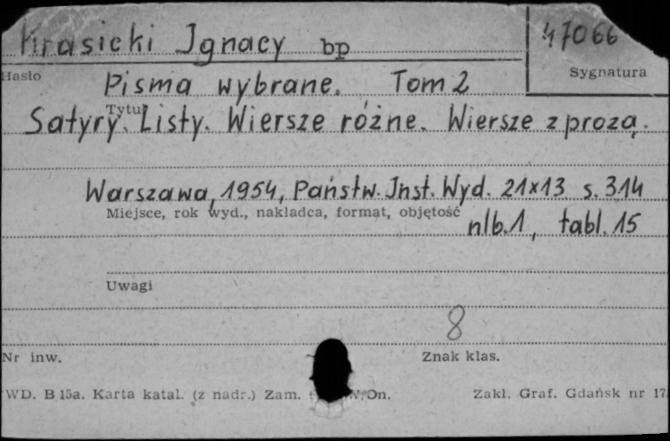 Krasicki Ignacy bp
47066
Hasło
Sygnatura
Pisma wybrane. Tom 2
Tytuł
Satyry. Listy. Wiersze różne. Wiersze z prozą.
Warszawa, 1954, Państw. Inst. Wyd. 21x13 s. 314
Miejsce, rok wyd., nakładca, format, objętość
nlb. 1, tabl. 15
Uwagi
8
Nr inw.
Znak klas.
WD. B 15a. Karta katal. (z nadr.) Zam. On.
Zakł. Graf. Gdańsk nr 17